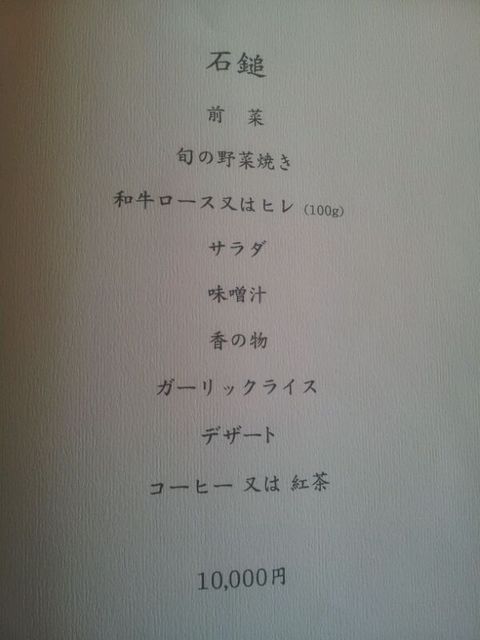 石鎚
前 菜
旬の野菜焼き
和牛ロース又はヒレ (100g)
サラダ
味噌汁
香の物
ガーリックライス
デザート
コーヒー 又は 紅茶
10,000円